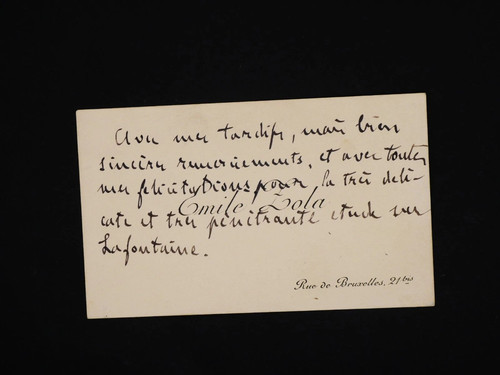 Avec mes tardifs, mais bien
sincères remerciements, et avec toutes
mes félicitations pour la très déli-
Emile Zola
cate et très pénétrante étude sur
Lafontaine.
Rue de Bruxelles, 21 bis